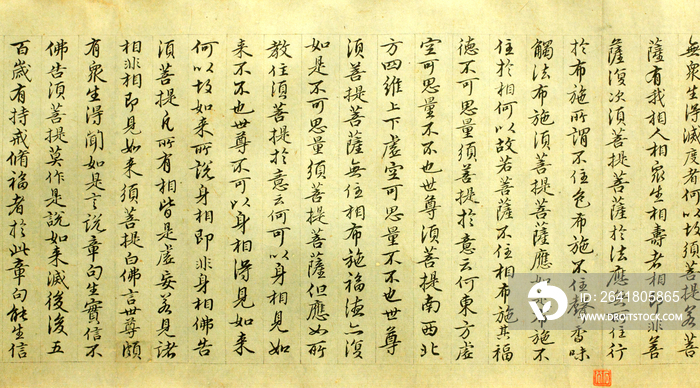 無眾生得滅度者何以故須菩提若菩
薩有我相人相眾生相壽者相即非菩
薩復次須菩提菩薩於法應住行
於布施所謂不住色布施不住香味
觸法布施須菩提菩薩應如是布施不
住於相何以故若菩薩不住相布施其福
德不可思量須菩提於意云何東方虛
空可思量不不也世尊須菩提南西北
方四維上下虛空可思量不不也世尊
須菩提菩薩無住相布施福德亦復
如是不可思量須菩提菩薩但應如所
教住須菩提於意云何可以身相見如
來不不也世尊不可以身相得見如來
何以故如來所說身相即非身相佛告
須菩提凡所有相皆是虛妄若見諸
相非相即見如來須菩提白佛言世尊頗
有眾生得聞如是言說章句生實信不
佛告須菩提莫作是說如來滅後後五
百歲有持戒脩福者於此章句能生信
プレビュー
ID : 2641805865